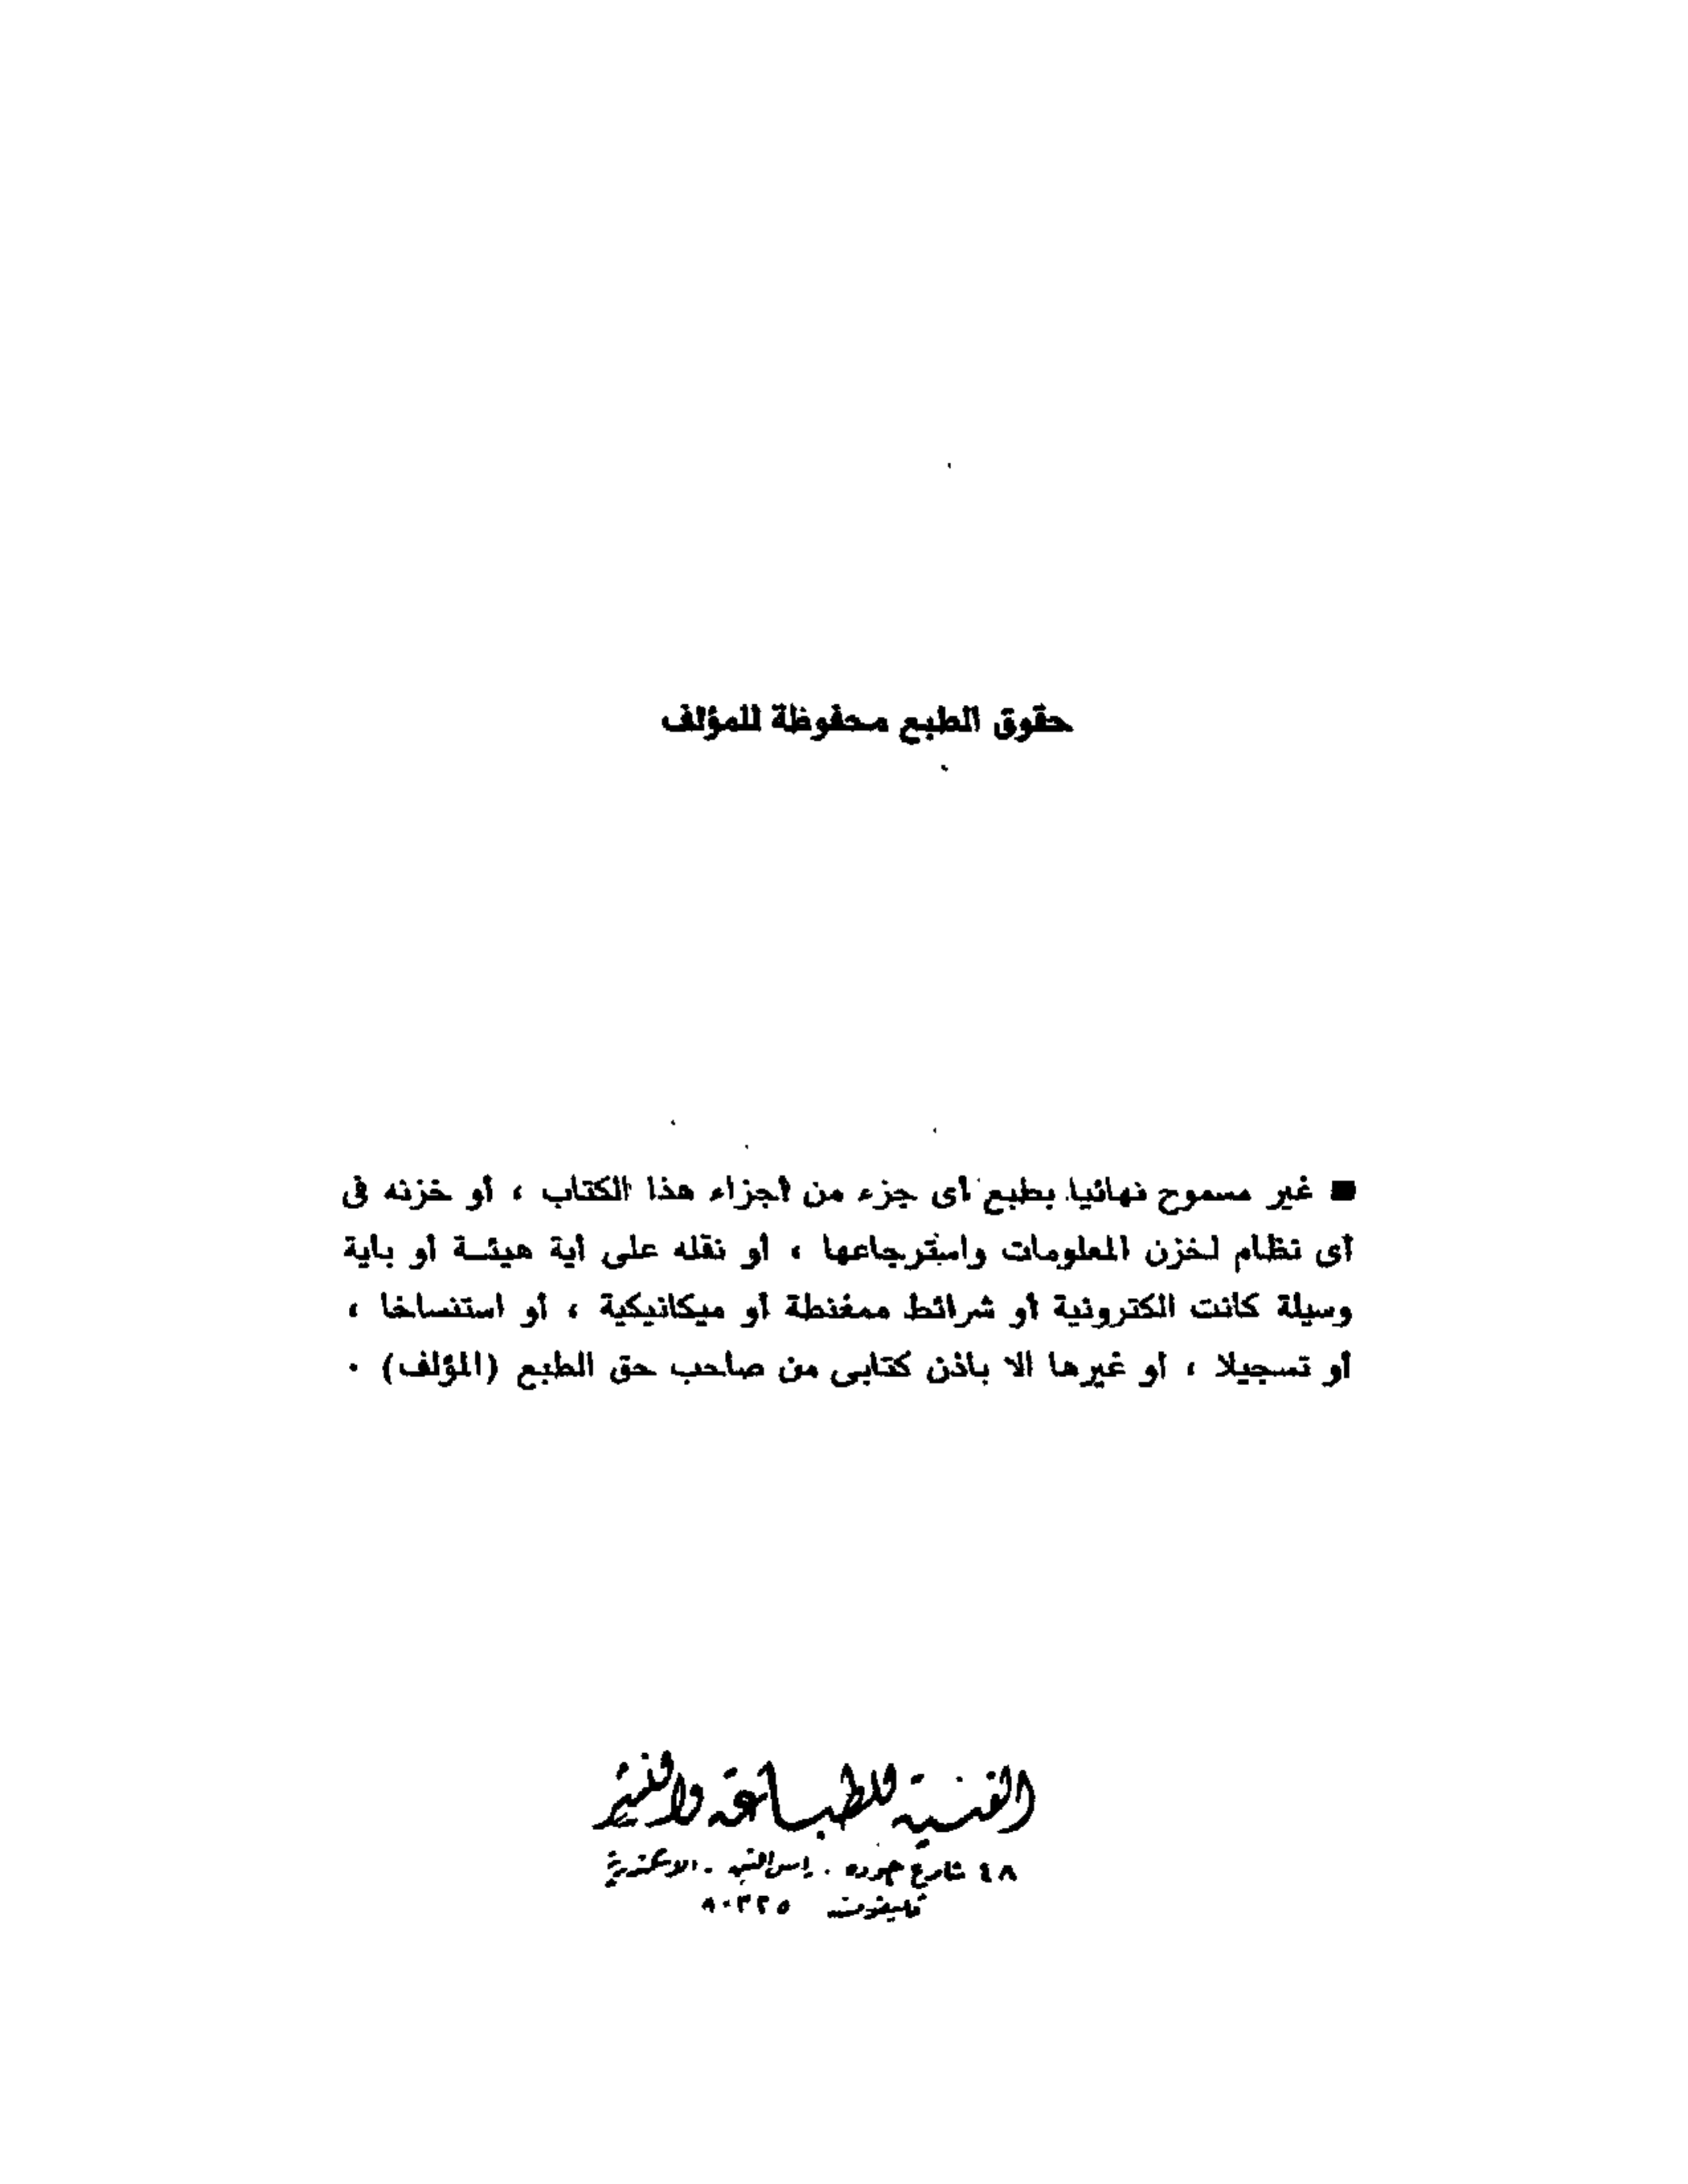 حقوق الطبع محفوظة للمؤلف
■ غير مسموح نهائيا بطبع أى جزء من أجزاء هذا الكتاب ، أو خزنه فى
أى نظام لخزن المعلومات واسترجاعها ، أو نقله على أية هيئــة أو باية
وسيلة كانت الكترونية أو شرائط ممغنطة أو ميكانيكية ، أو استنساخا ،
أو تسجيلا ، أو غيرها الا باذن كتابى من صاحب حق الطبع (المؤلف) .
الفنية للطباعة والنشر
٤٨ شارع . راس التين . الاسكندرية
تليفون